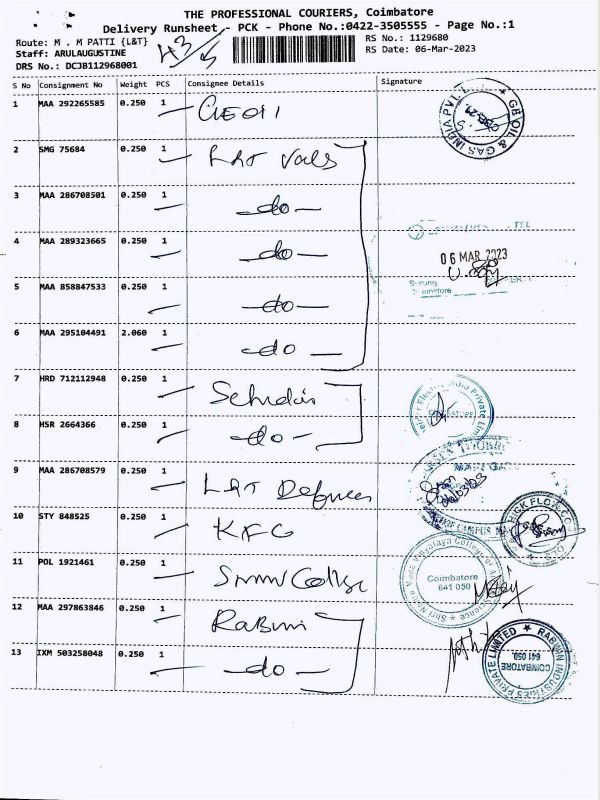 THE PROFESSIONAL COURIERS, Coimbatore
Delivery Runsheet - PCK - Phone No.:0422-3505555 - Page No.:1
Route: M . M PATTI {L&T}
Staff: ARULAUGUSTINE
DRS No.: DCJB112968001
RS No.: 1129680
RS Date: 06-Mar-2023
S No Consignment No Weight PCS Consignee Details Signature
1 MAA 292265585 0.250 1
GB OIL & GAS INDIA PVT.
2 SMG 75684 0.250 1 L&T Valves
3 MAA 286708501 0.250 1 -do-
4 MAA 289323665 0.250 1 -do-
06 MAR 2023
5 MAA 858847533 0.250 1 -do-
6 MAA 295104491 2.060 1 -do-
7 HRD 712112948 0.250 1
8 HSR 2664366 0.250 1 -do-
9 MAA 286708579 0.250 1 L&T Defence
10 STY 848525 0.250 1 KFC
11 POL 1921461 0.250 1 SNMV College
Coimbatore
641 050
12 MAA 297863846 0.250 1
13 IXM 503258048 0.250 1 -do-
INDUSTRIES PRIVATE LIMITED
COIMBATORE
641 050